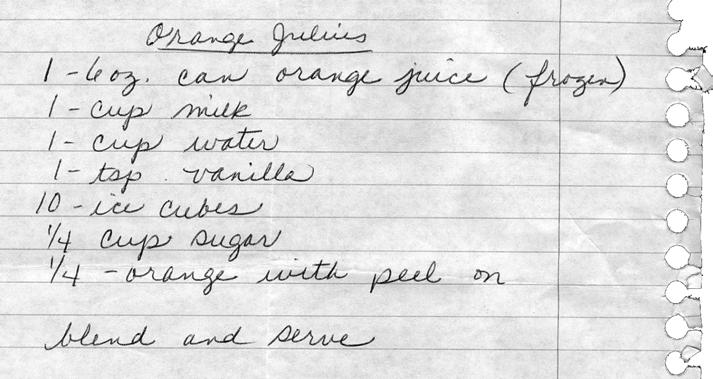 Orange Julius
1 - 6 oz. can orange juice (frozen)
1 - cup milk
1 - cup water
1 - tsp. vanilla
10 - ice cubes
1/4 cup sugar
1/4 - orange with peel on
blend and serve